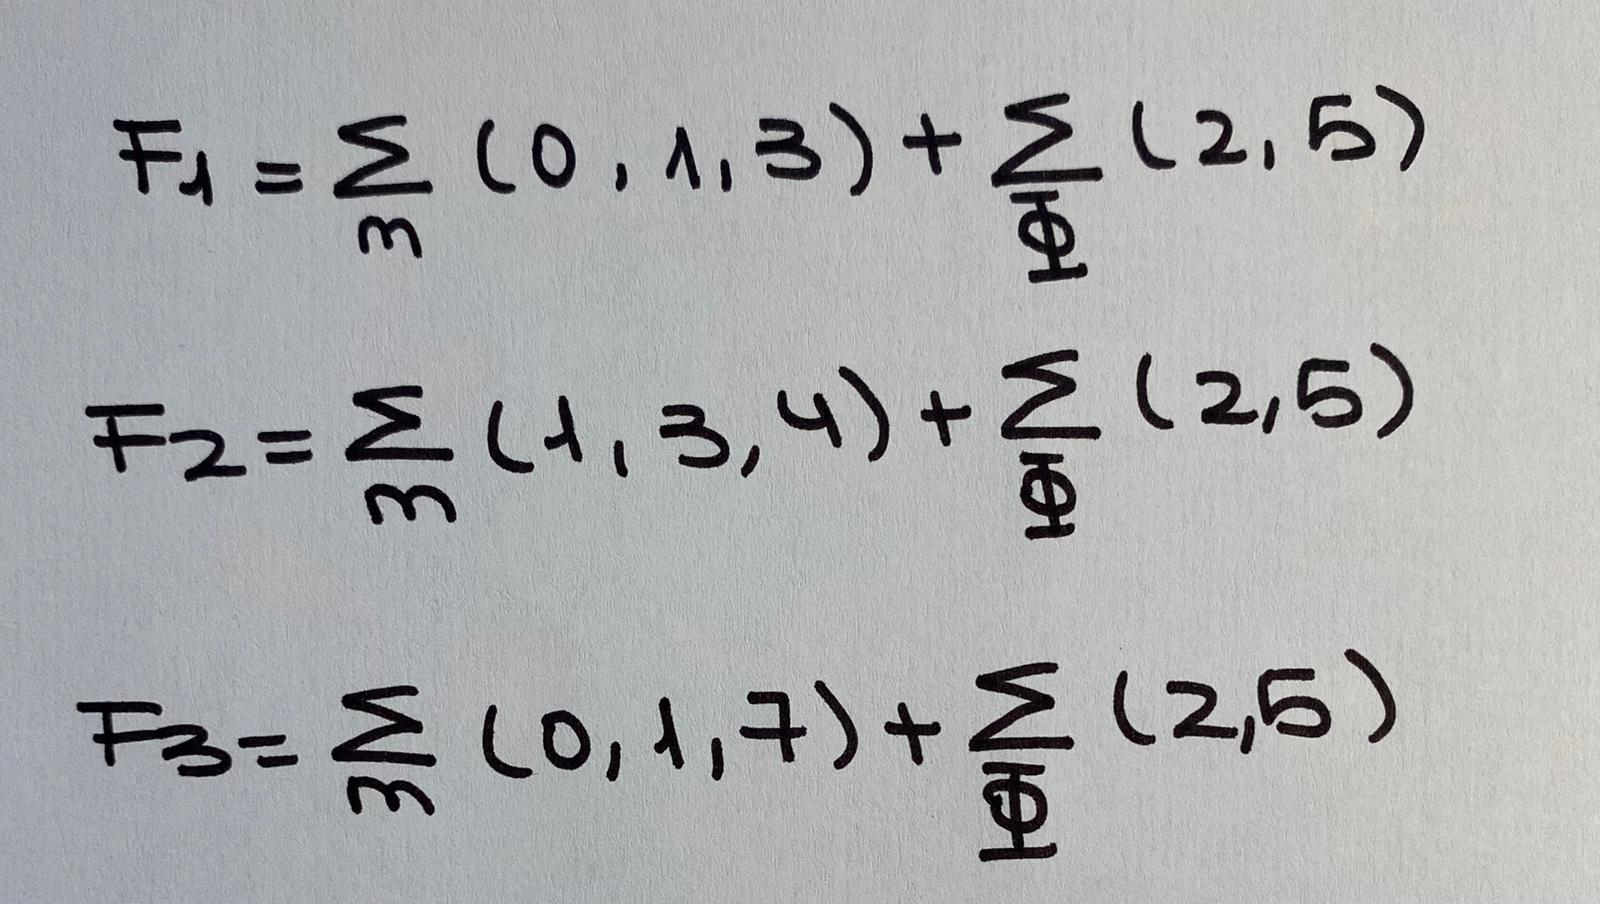 F1 = Σm (0, 1, 3) + ΣΦ (2, 5)
F2 = Σm (1, 3, 4) + ΣΦ (2, 5)
F3 = Σm (0, 1, 7) + ΣΦ (2, 5)